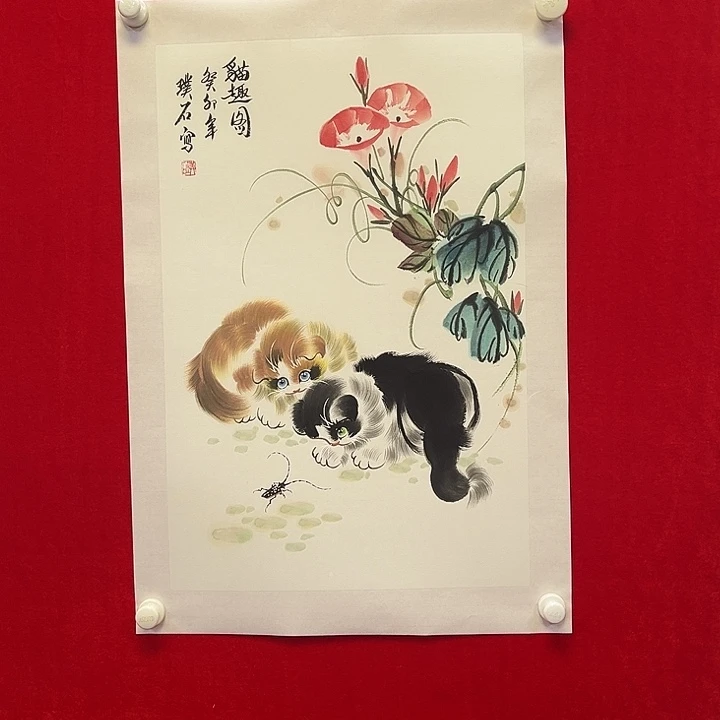 貓趣图
癸卯年
璞石寫